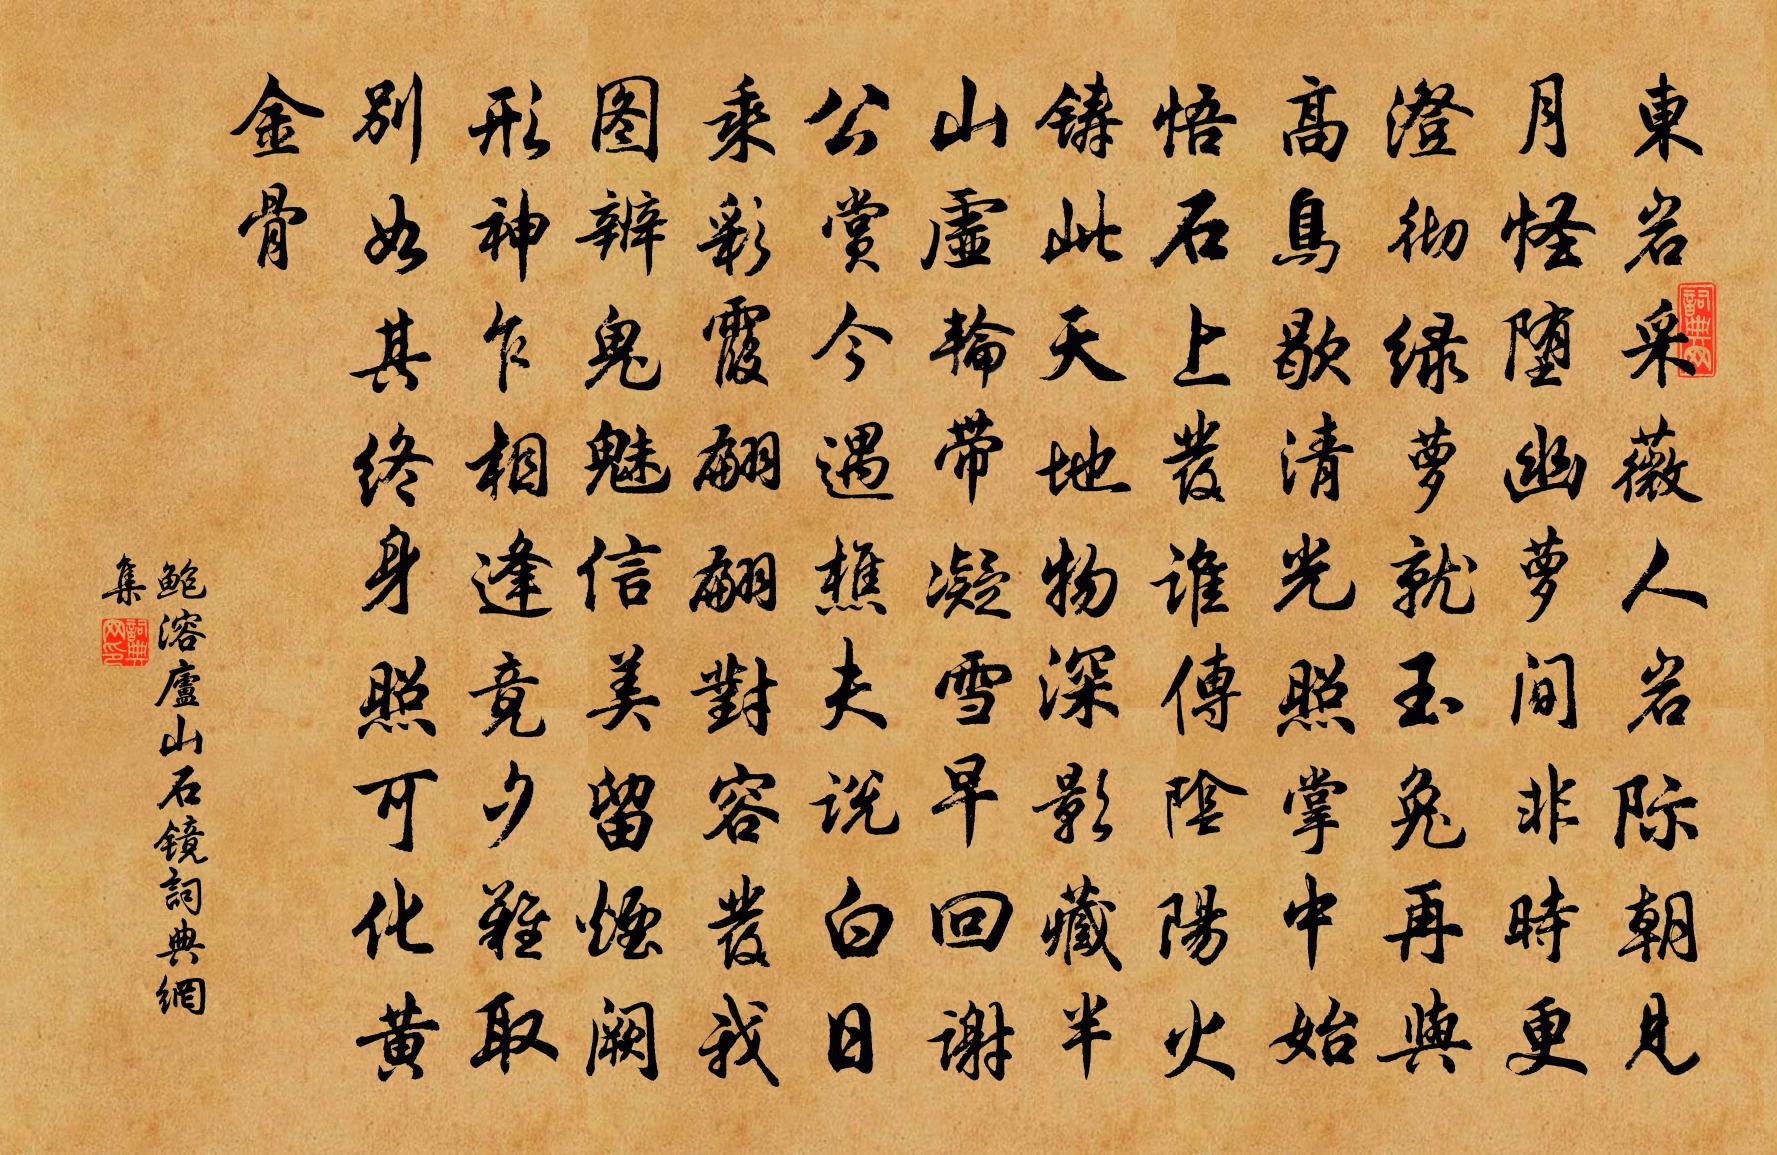 東岩采薇人岩际朝見
月怪墮幽萝间非時更
澄彻緑萝就玉兔再與
高鳥歇清光照掌中始
悟石上發谁傳陰陽火
鋳此天地物深影藏半
山虛輪带凝雪早回谢
公賞今遇樵夫说白日
乘彩霞翩翩對容發我
图辨鬼魅信美留煙阙
形神乍相逢竟夕難取
别如其终身照可化黄
金骨
鲍溶廬山石鏡詞典網
集
詞典网
詞典网印